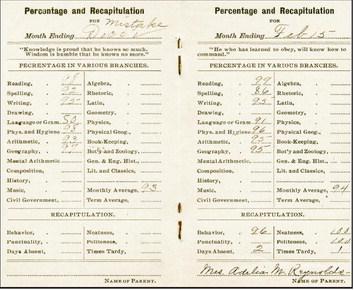 Percentage and Recapitulation
FOR Mistake
Month Ending
"Knowledge is proud that he knows so much,
Wisdom is humble that he knows no more."
PERCENTAGE IN VARIOUS BRANCHES.
Reading, Algebra,
Spelling, Rhetoric,
Writing, Latin,
Drawing, Geometry,
Language or Gram. Physics,
Phys. and Hygiene Physical Geog.,
Arithmetic, Book-Keeping,
Geography, Bot'y and Zoology,
Mental Arithmetic Gen. & Eng. Hist.,
Composition, Lit. and Classics,
History,
Music, Monthly Average, 93
Civil Government, Term Average,
RECAPITULATION.
Behavior, Neatness,
Punctuality, Politeness,
Days Absent, Times Tardy,
NAME OF PARENT.
Percentage and Recapitulation
FOR
Month Ending Feb 15
"He who has learned to obey, will know how to
command."
PERCENTAGE IN VARIOUS BRANCHES.
Reading, 99 Algebra,
Spelling, 86 Rhetoric,
Writing, 95 Latin,
Drawing, Geometry,
Language or Gram. 91 Physics,
Phys. and Hygiene 96 Physical Geog.,
Arithmetic, Book-Keeping,
Geography, 95 Bot'y and Zoology,
Mental Arithmetic Gen. & Eng. Hist.,
Composition, Lit. and Classics,
History,
Music, Monthly Average, 94
Civil Government, Term Average,
RECAPITULATION.
Behavior, 96 Neatness, 100
Punctuality, Politeness, 100
Days Absent, 2 Times Tardy, 1
Mrs. Adelia M. Reynolds
NAME OF PARENT.